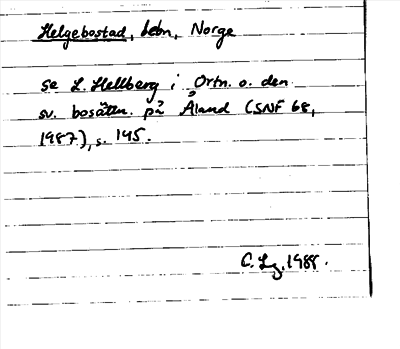 Helgebostad, bebn, Norge
se L. Hellberg i Ortn. o. den
sv. bosättn. på Åland (SNF 68,
1987), s. 195.
C. Lg. 1988.